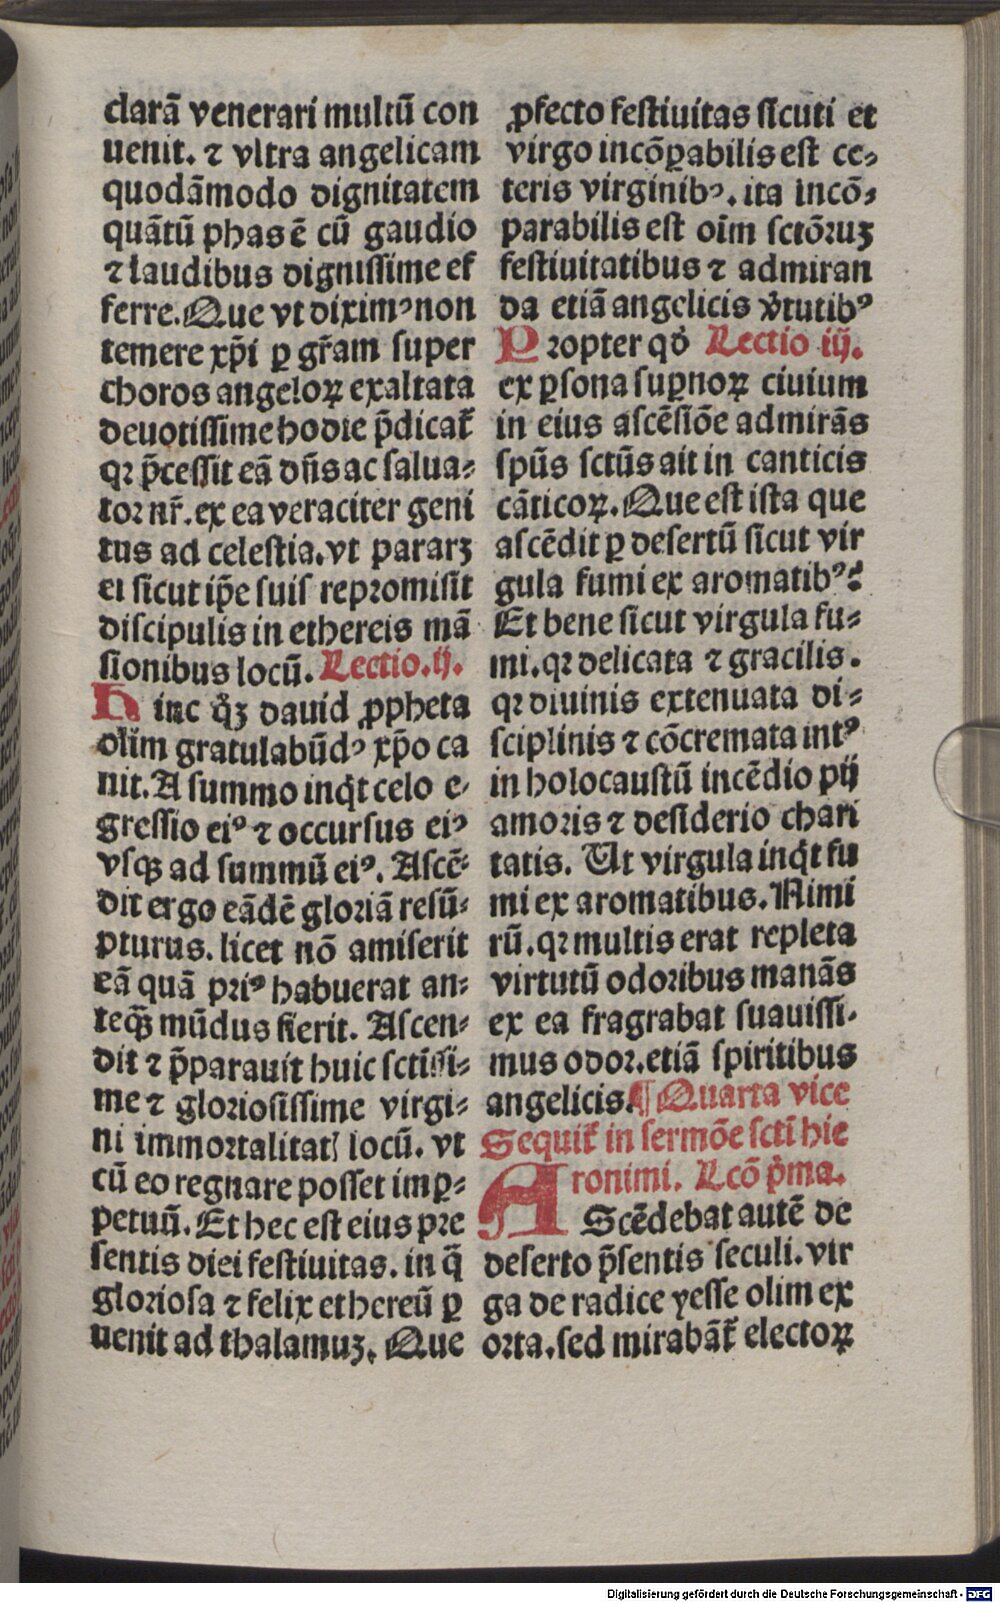 clarā venerari multū con
uenit. ⁊ vltra angelicam
quodāmodo dignitatem
quātū phas ē cū gaudio
⁊ laudibus dignissime ef
ferre. Que vt diximꝰ non
temere xp̄i ꝑ gr̄am super
choros angeloꝝ exaltata
deuotissime hodie p̄dicat̄
qꝛ p̄cessit eā dn̄s ac salua⸗
toꝛ nr̄. ex ea veraciter geni
tus ad celestia. vt pararꝫ
ei sicut ip̄e suis repꝛomisit
discipulis in ethereis mā
sionibus locū. Lectio. ij.
Hinc qͥꝫ dauid ꝓpheta
olim gratulabūdꝰ xp̄o ca
nit. A summo inqͥt celo e⸗
gressio eiꝰ ⁊ occursus eiꝰ
vsqꝫ ad summū eiꝰ. Ascē⸗
dit ergo eādē gloꝛiā resū⸗
pturus. licet nō amiserit
eā quā pꝛiꝰ habuerat an⸗
teqꝫ mūdus fierit. Ascen⸗
dit ⁊ p̄parauit huic sctīssi⸗
me ⁊ gloꝛiosissime virgi⸗
ni immoꝛtalitatꝭ locū. vt
cū eo regnare posset imꝑ⸗
petuū. Et hec est eius pꝛe
sentis diei festiuitas. in q̄
gloꝛiosa ⁊ felix ethereū ꝑ
uenit ad thalamuꝫ. Que
ꝓfecto festiuitas sicuti et
virgo incōꝑabilis est ce⸗
teris virginibꝰ. ita incō⸗
parabilis est oīm sctōꝛuꝫ
festiuitatibus ⁊ admiran
da etiā angelicis v̓tutibꝰ
Propter qđ Lectio iij.
ex ꝑsona suꝑnoꝝ ciuium
in eius ascēsiōe admirās
spūs sctūs ait in canticis
cāticoꝝ. Que est ista que
ascēdit ꝑ desertū sicut vir
gula fumi ex aromatibꝰ?
Et bene sicut virgula fu⸗
mi. qꝛ delicata ⁊ gracilis.
qꝛ diuinis extenuata di⸗
sciplinis ⁊ cōcremata intꝰ
in holocaustū incēdio pij
amoꝛis ⁊ desiderio chari
tatis. Ut virgula inqͥt fu
mi ex aromatibus. Nimi
rū. qꝛ multis erat repleta
virtutū odoꝛibus manās
ex ea fragrabat suauissi⸗
mus odoꝛ. etiā spiritibus
angelicis. ¶ Quarta vice
Sequit̄ in sermōe sctī hie
ronimi. Lcō pͥma.
AScēdebat autē de
deserto p̄sentis seculi. vir
ga de radice yesse olim ex
oꝛta. sed mirabāt̄ electoꝝ
Digitalisierung gefördert durch die Deutsche Forschungsgemeinschaft - DFG